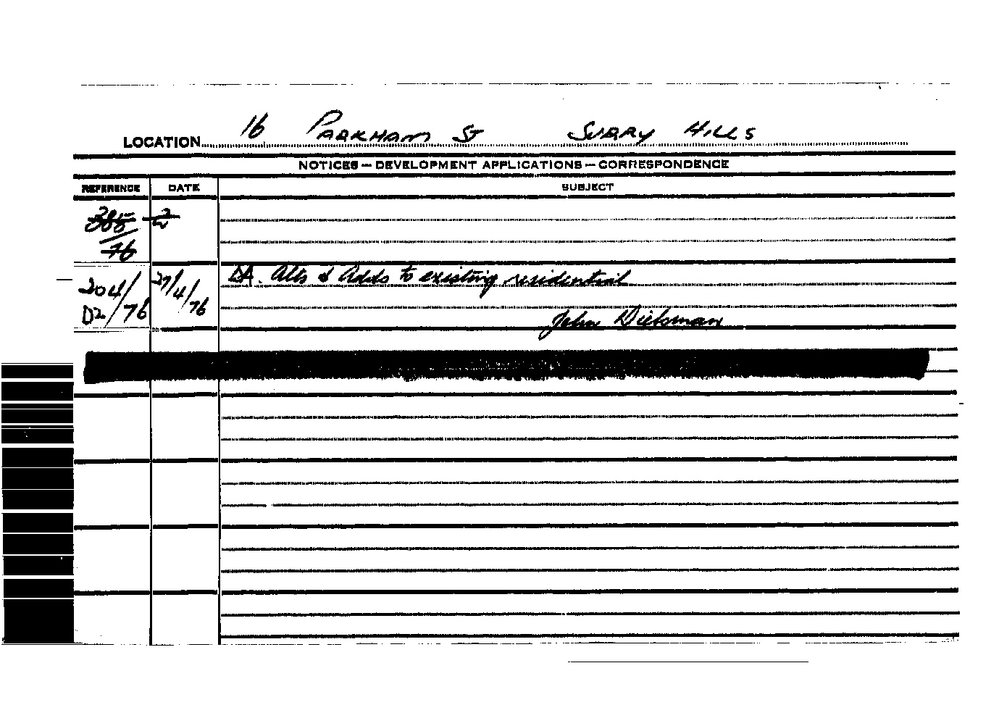 LOCATION 16 PARKHAM ST SURRY HILLS
NOTICES — DEVELOPMENT APPLICATIONS — CORRESPONDENCE
REFERENCE DATE SUBJECT
385 2
76
204/ 27/4/76 DA. Alts & Adds to existing residential
D2/76 John